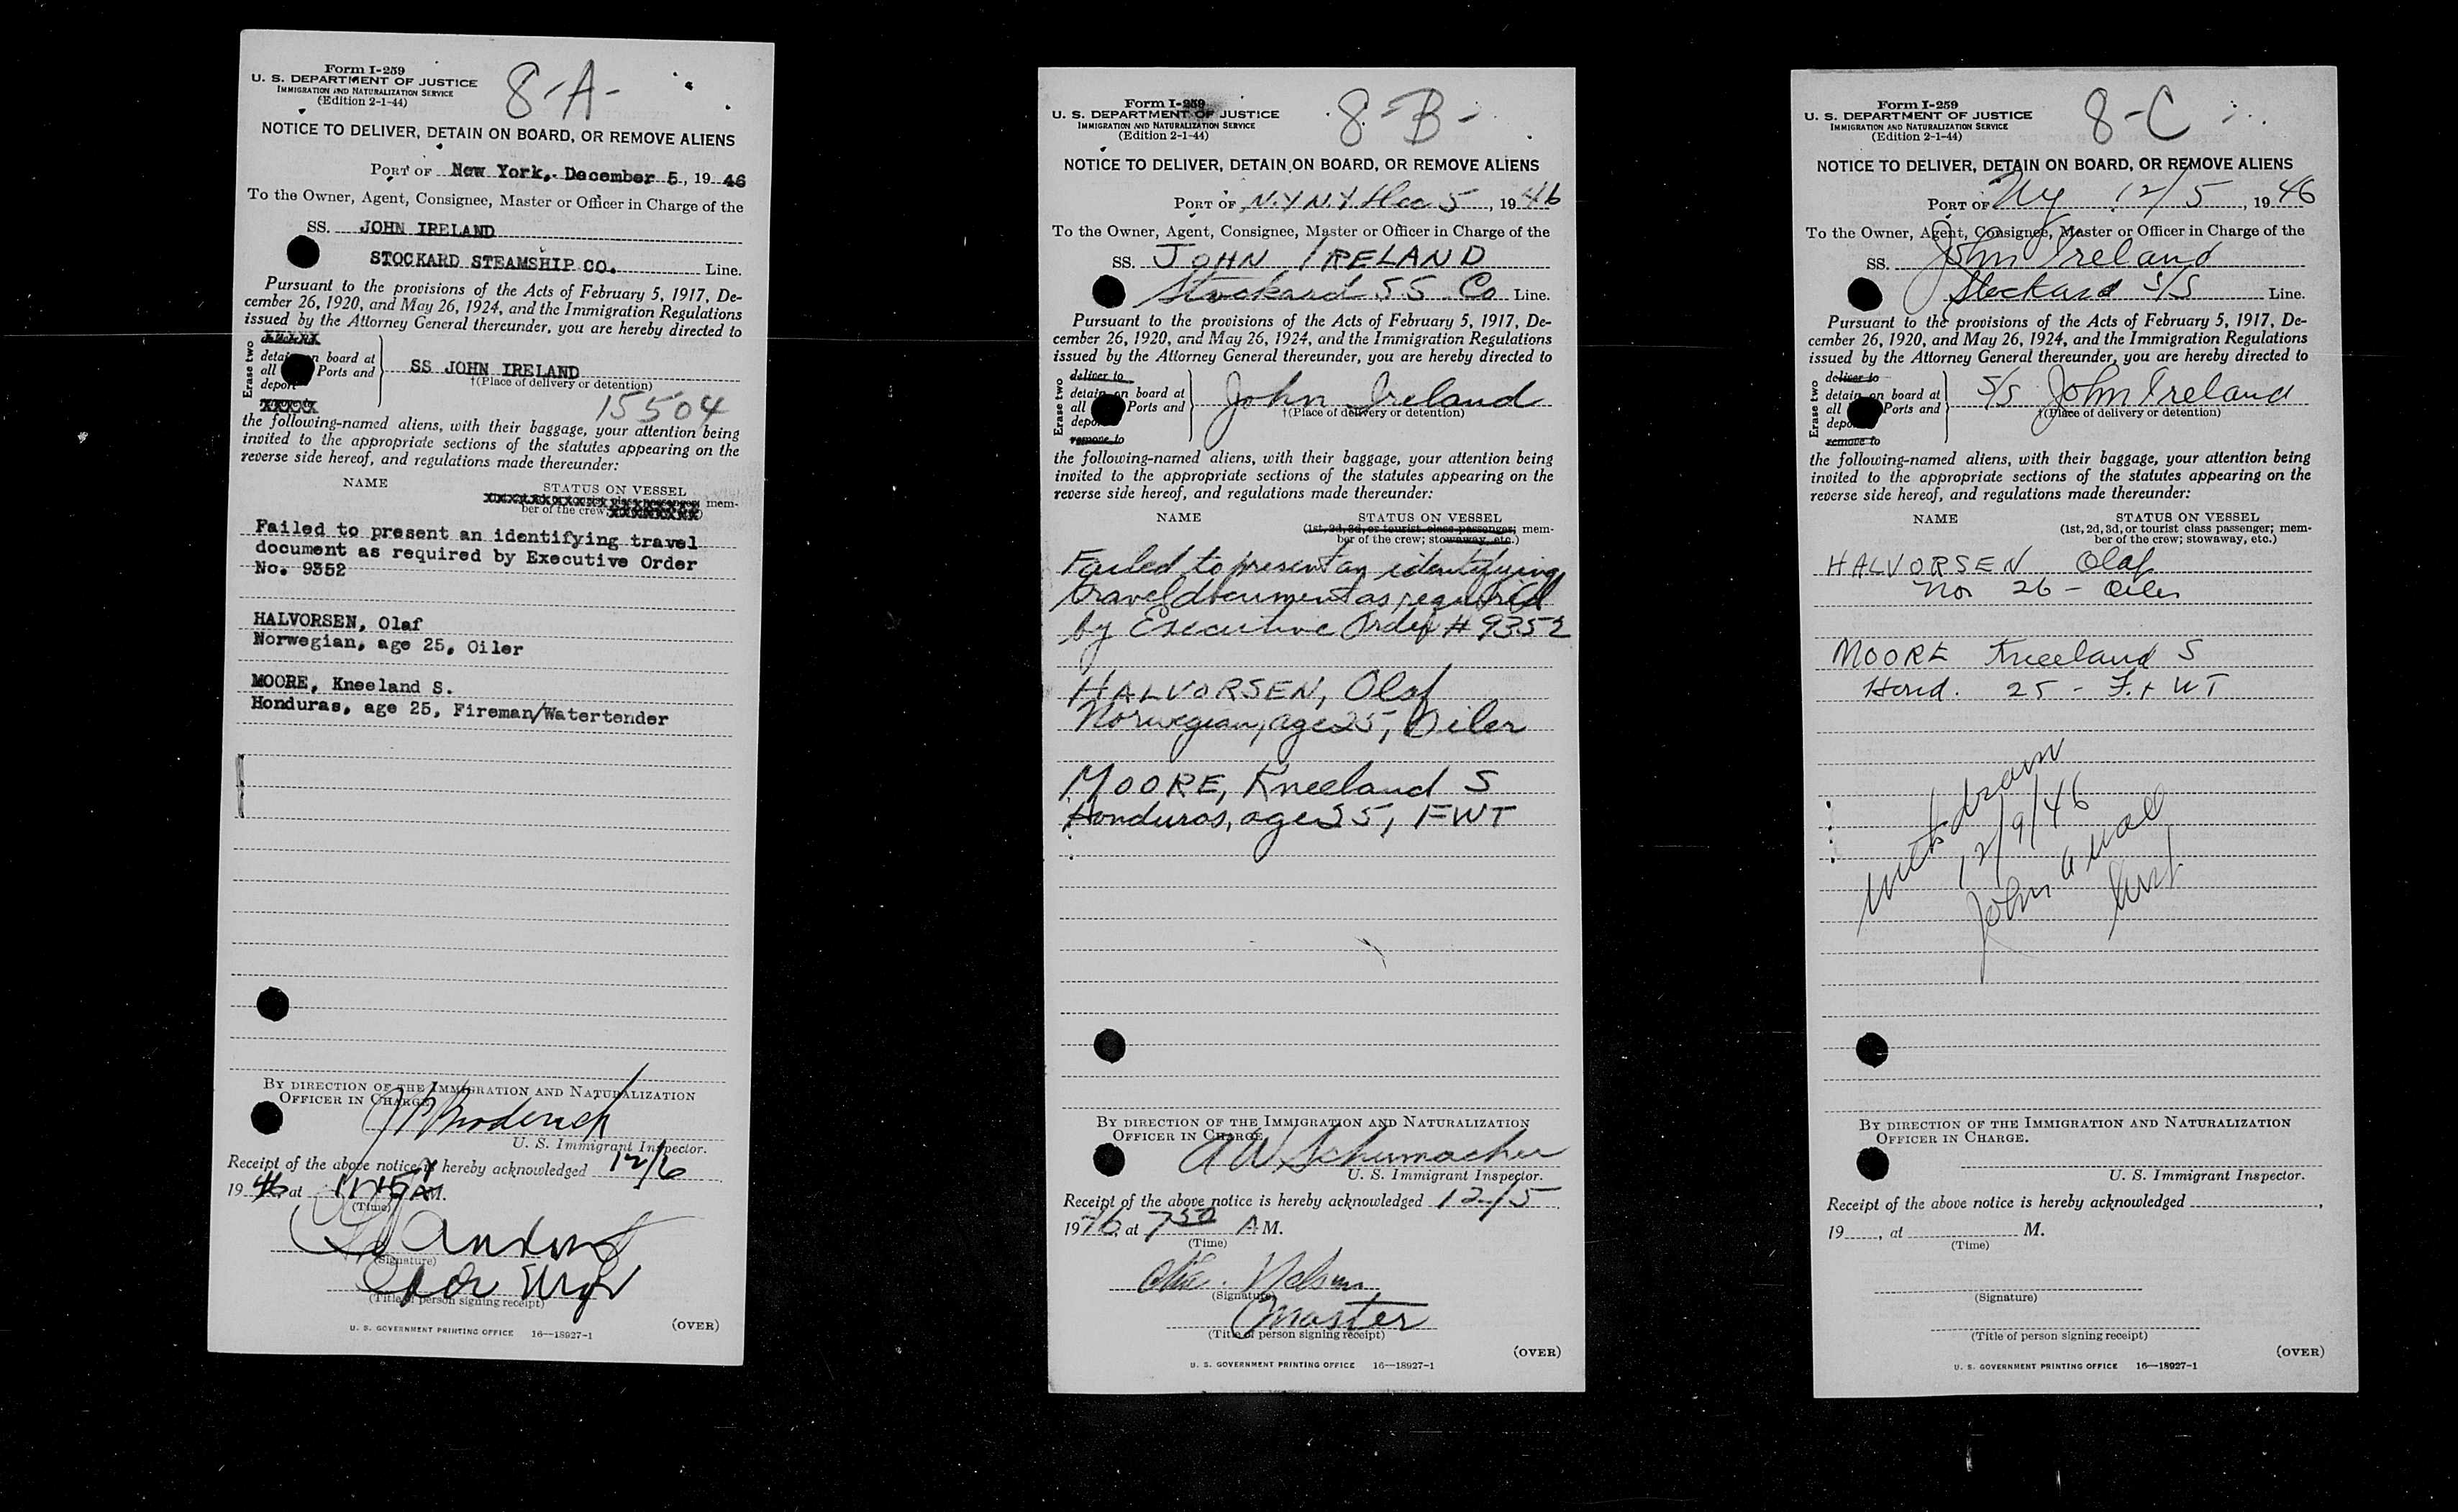 Form I-259
U. S. DEPARTMENT OF JUSTICE
IMMIGRATION AND NATURALIZATION SERVICE
(Edition 2-1-44)
8-A-
NOTICE TO DELIVER, DETAIN ON BOARD, OR REMOVE ALIENS
PORT OF New York, December 5, 19 46
To the Owner, Agent, Consignee, Master or Officer in Charge of the
SS. JOHN IRELAND
STOCKARD STEAMSHIP CO. Line.
Pursuant to the provisions of the Acts of February 5, 1917, De-
cember 26, 1920, and May 26, 1924, and the Immigration Regulations
issued by the Attorney General thereunder, you are hereby directed to
Erase two
on board at
all Ports and
SS JOHN IRELAND
†(Place of delivery or detention)
XXXXX
15504
the following-named aliens, with their baggage, your attention being
invited to the appropriate sections of the statutes appearing on the
reverse side hereof, and regulations made thereunder:
NAME STATUS ON VESSEL
mem-
ber of the crew;
Failed to present an identifying travel
document as required by Executive Order
No. 9352
HALVORSEN, Olaf
Norwegian, age 25, Oiler
MOORE, Kneeland S.
Honduras, age 25, Fireman/Watertender
BY DIRECTION OF THE IMMIGRATION AND NATURALIZATION
OFFICER IN CHARGE.
Broderick
U. S. Immigrant Inspector.
Receipt of the above notice is hereby acknowledged 12/6
19 46 at M.
(Time)
(Signature)
(Title of person signing receipt)
U. S. GOVERNMENT PRINTING OFFICE 16—18927-1
(OVER)
Form I-259
U. S. DEPARTMENT OF JUSTICE
IMMIGRATION AND NATURALIZATION SERVICE
(Edition 2-1-44)
8-B-
NOTICE TO DELIVER, DETAIN ON BOARD, OR REMOVE ALIENS
PORT OF N.Y N.Y Dec 5, 19 46
To the Owner, Agent, Consignee, Master or Officer in Charge of the
SS. JOHN IRELAND
Stockard SS Co Line.
Pursuant to the provisions of the Acts of February 5, 1917, De-
cember 26, 1920, and May 26, 1924, and the Immigration Regulations
issued by the Attorney General thereunder, you are hereby directed to
Erase two
deliver to
detain on board at
all Ports and
remove to
John Ireland
†(Place of delivery or detention)
the following-named aliens, with their baggage, your attention being
invited to the appropriate sections of the statutes appearing on the
reverse side hereof, and regulations made thereunder:
NAME STATUS ON VESSEL
(1st, 2d, 3d, or tourist class passenger; mem-
ber of the crew; stowaway, etc.)
Failed to present an identifying
travel document as required
by Executive Order # 9352
HALVORSEN, Olaf
Norwegian, age 25, Oiler
MOORE, Kneeland S
Honduras, age 25, FWT
BY DIRECTION OF THE IMMIGRATION AND NATURALIZATION
OFFICER IN CHARGE.
A W Schumacher
U. S. Immigrant Inspector.
Receipt of the above notice is hereby acknowledged 12/5
19 46 at 7 50 A M.
(Time)
Nelson
(Signature)
Master
(Title of person signing receipt)
(OVER)
U. S. GOVERNMENT PRINTING OFFICE 16—18927-1
Form I-259
U. S. DEPARTMENT OF JUSTICE
IMMIGRATION AND NATURALIZATION SERVICE
(Edition 2-1-44)
8-C
NOTICE TO DELIVER, DETAIN ON BOARD, OR REMOVE ALIENS
PORT OF NY 12/5, 19 46
To the Owner, Agent, Consignee, Master or Officer in Charge of the
SS. John Ireland
Stockard S/S Line.
Pursuant to the provisions of the Acts of February 5, 1917, De-
cember 26, 1920, and May 26, 1924, and the Immigration Regulations
issued by the Attorney General thereunder, you are hereby directed to
Erase two
deliver to
detain on board at
all Ports and
remove to
S/S John Ireland
†(Place of delivery or detention)
the following-named aliens, with their baggage, your attention being
invited to the appropriate sections of the statutes appearing on the
reverse side hereof, and regulations made thereunder:
NAME STATUS ON VESSEL
(1st, 2d, 3d, or tourist class passenger; mem-
ber of the crew; stowaway, etc.)
HALVORSEN Olaf
Nor 26 - Oiler
MOORE Kneeland S
Hond. 25 - F. + WT
withdrawn
12/9/46
John a Wall
Insp
BY DIRECTION OF THE IMMIGRATION AND NATURALIZATION
OFFICER IN CHARGE.
U. S. Immigrant Inspector.
Receipt of the above notice is hereby acknowledged ,
19 , at M.
(Time)
(Signature)
(Title of person signing receipt)
(OVER)
U. S. GOVERNMENT PRINTING OFFICE 16—18927-1